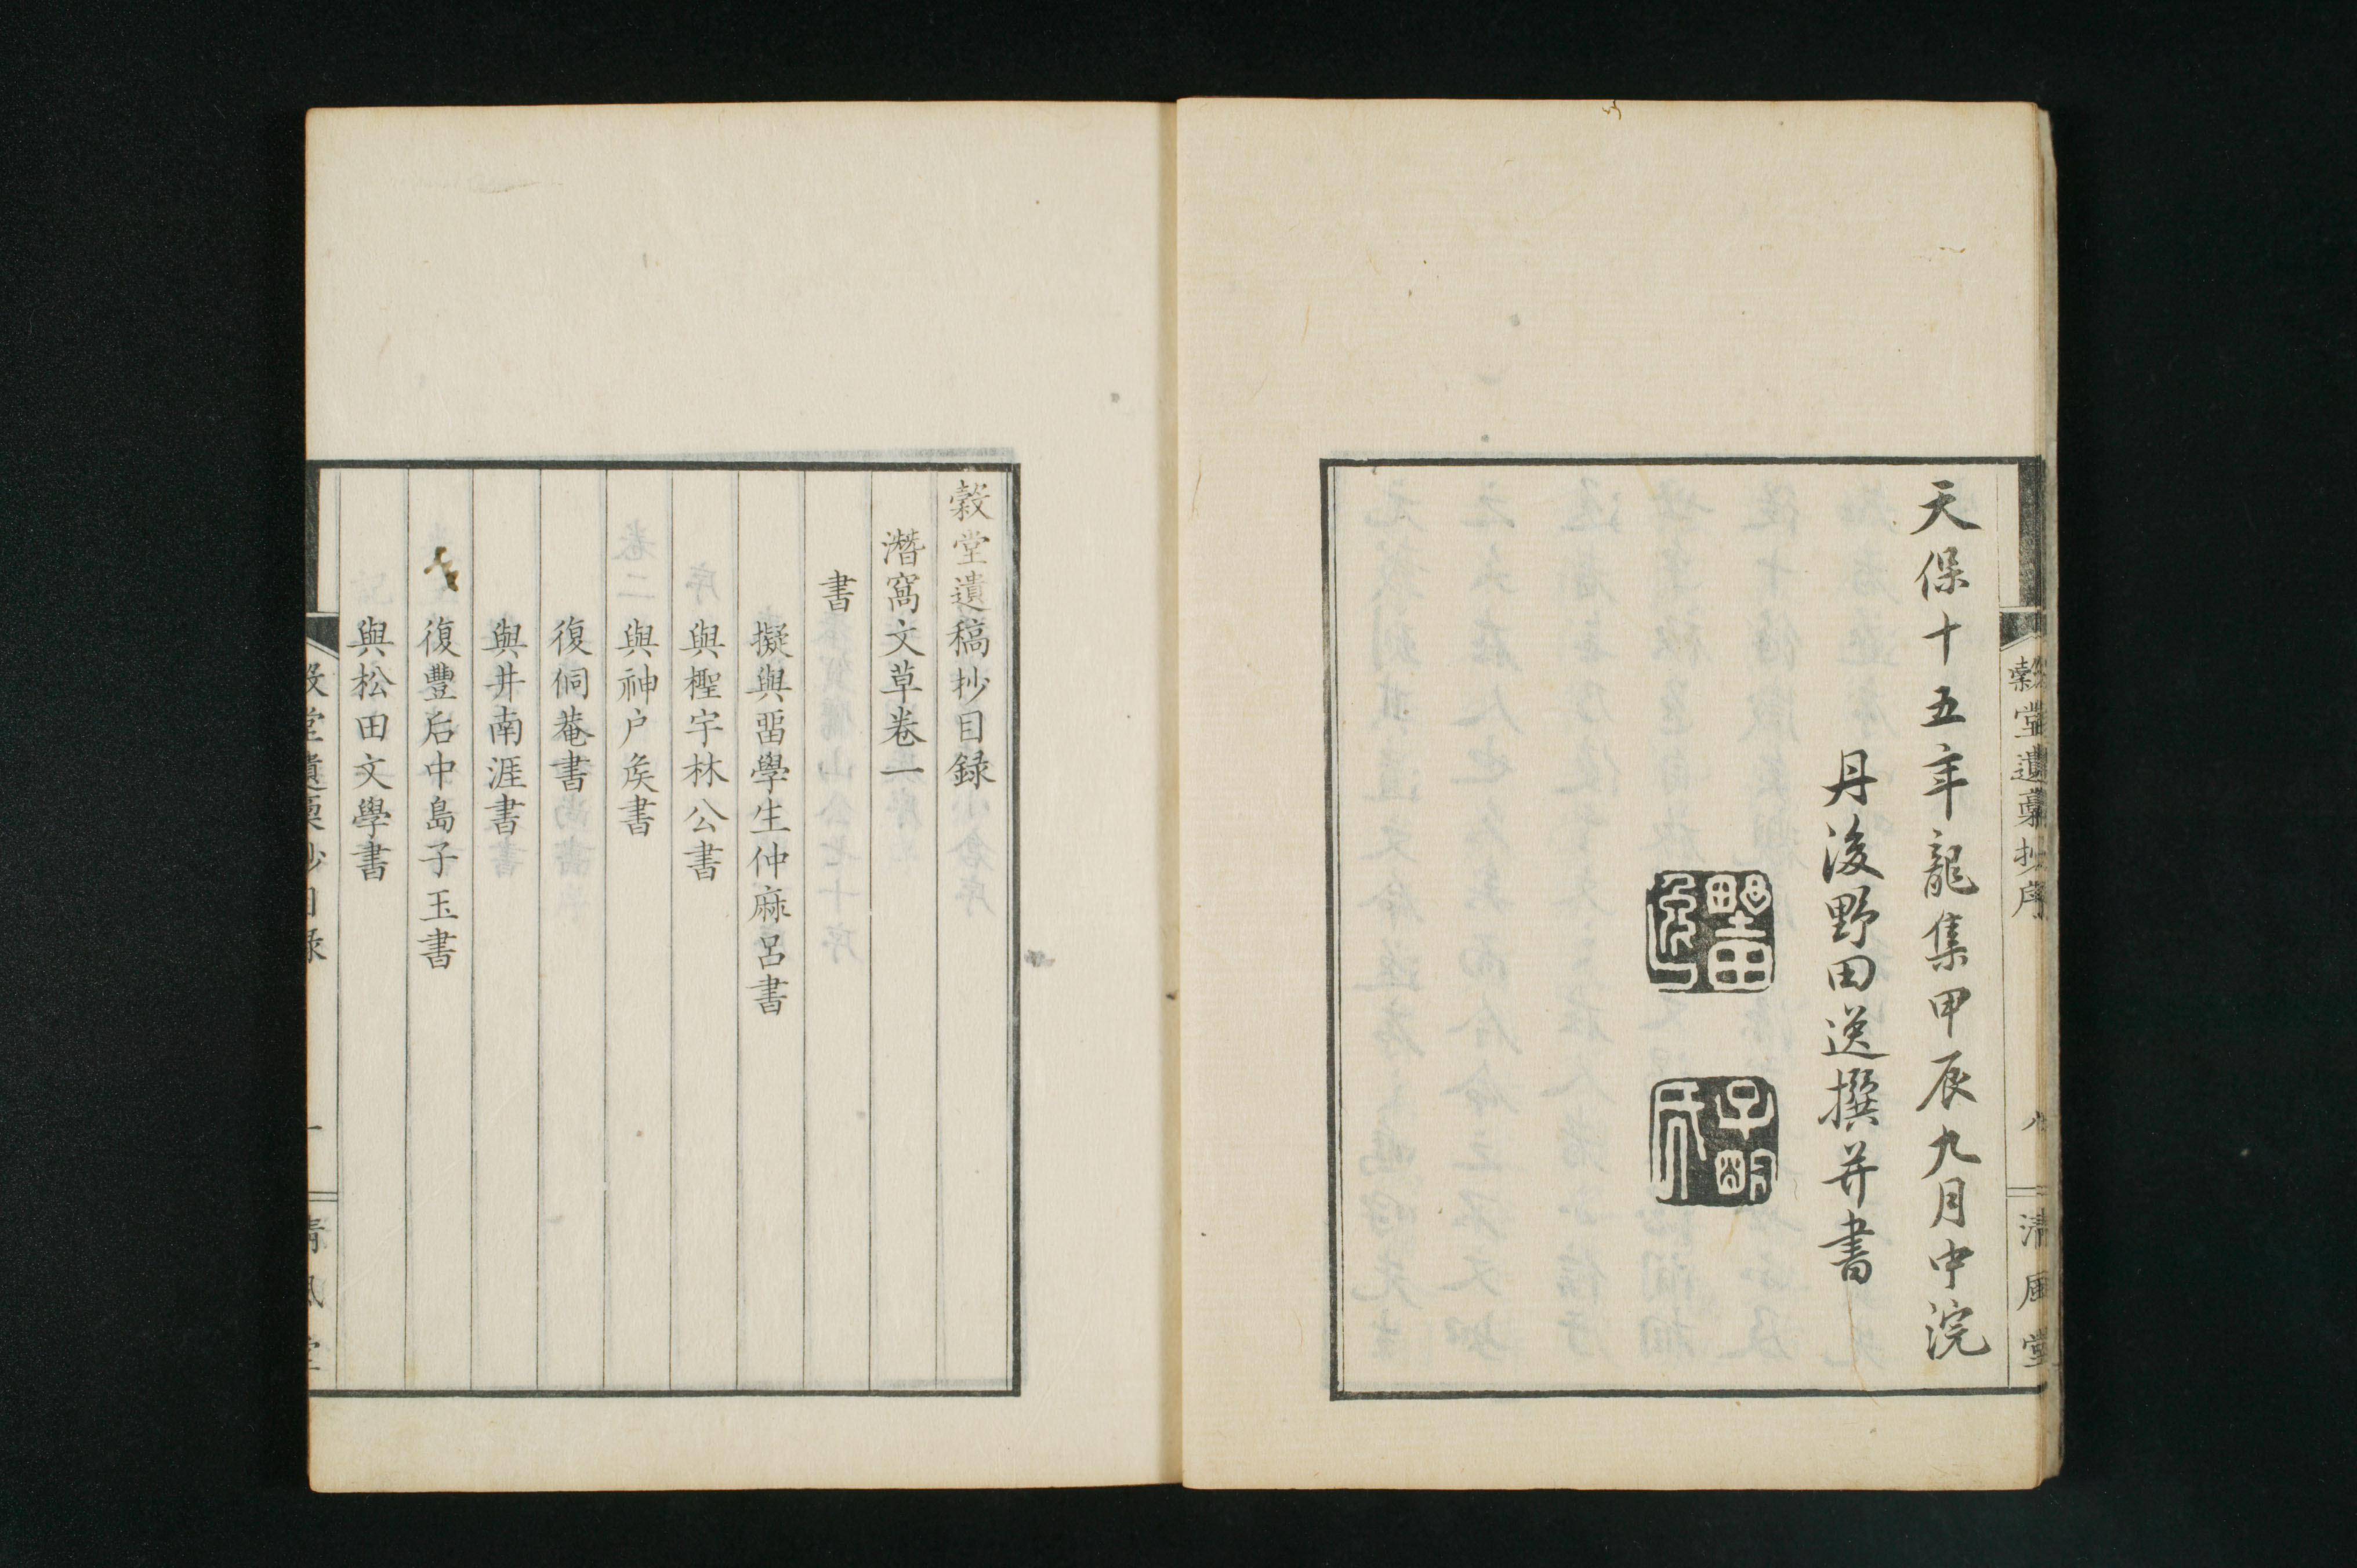 天保十五年龍集甲辰九月中浣
丹後野田逸撰并書
子明
穀堂遺稾抄序
八
清風堂
穀堂遺稿抄目録
潛窩文草卷一
書
擬與畱學生仲麻呂書
與檉宇林公書
與神户矦書
復侗菴書
與井南涯書
復豐后中島子玉書
與松田文學書
穀堂遺稾抄目録
一
清風堂